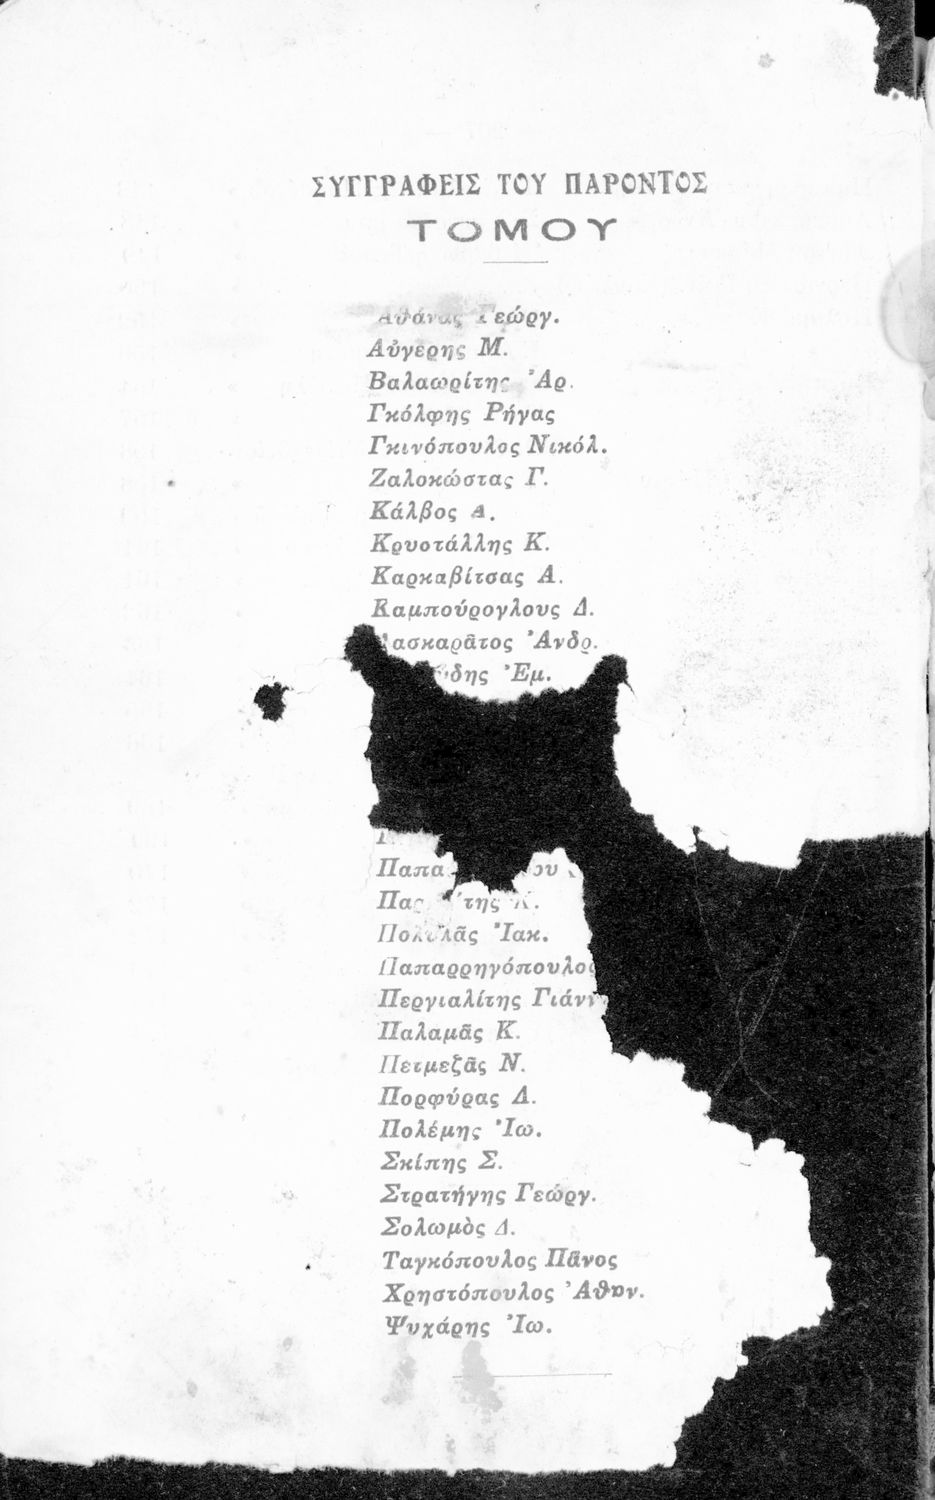 ΣΥΓΓΡΑΦΕΙΣ ΤΟΥ ΠΑΡΟΝΤΟΣ
ΤΟΜΟΥ
Ἀθάνας Γεώργ.
Αὐγέρης Μ.
Βαλαωρίτης Ἀρ.
Γκόλφης Ρήγας
Γκινόπουλος Νικόλ.
Ζαλοκώστας Γ.
Κάλβος Α.
Κρυστάλλης Κ.
Καρκαβίτσας Α.
Καμπούρογλους Δ.
Λασκαρᾶτος Ἀνδρ.
Ἐμ.
Πολυλᾶς Ἰακ.
Παπαρρηγόπουλος
Περγιαλίτης
Παλαμᾶς Κ.
Πετμεζᾶς Ν.
Πορφύρας Λ.
Πολέμης Ἰω.
Σκίπης Σ.
Στρατήγης Γεώργ.
Σολωμὸς Δ.
Ταγκόπουλος Πᾶνος
Χρηστόπουλος Ἀθαν.
Ψυχάρης Ἰω.